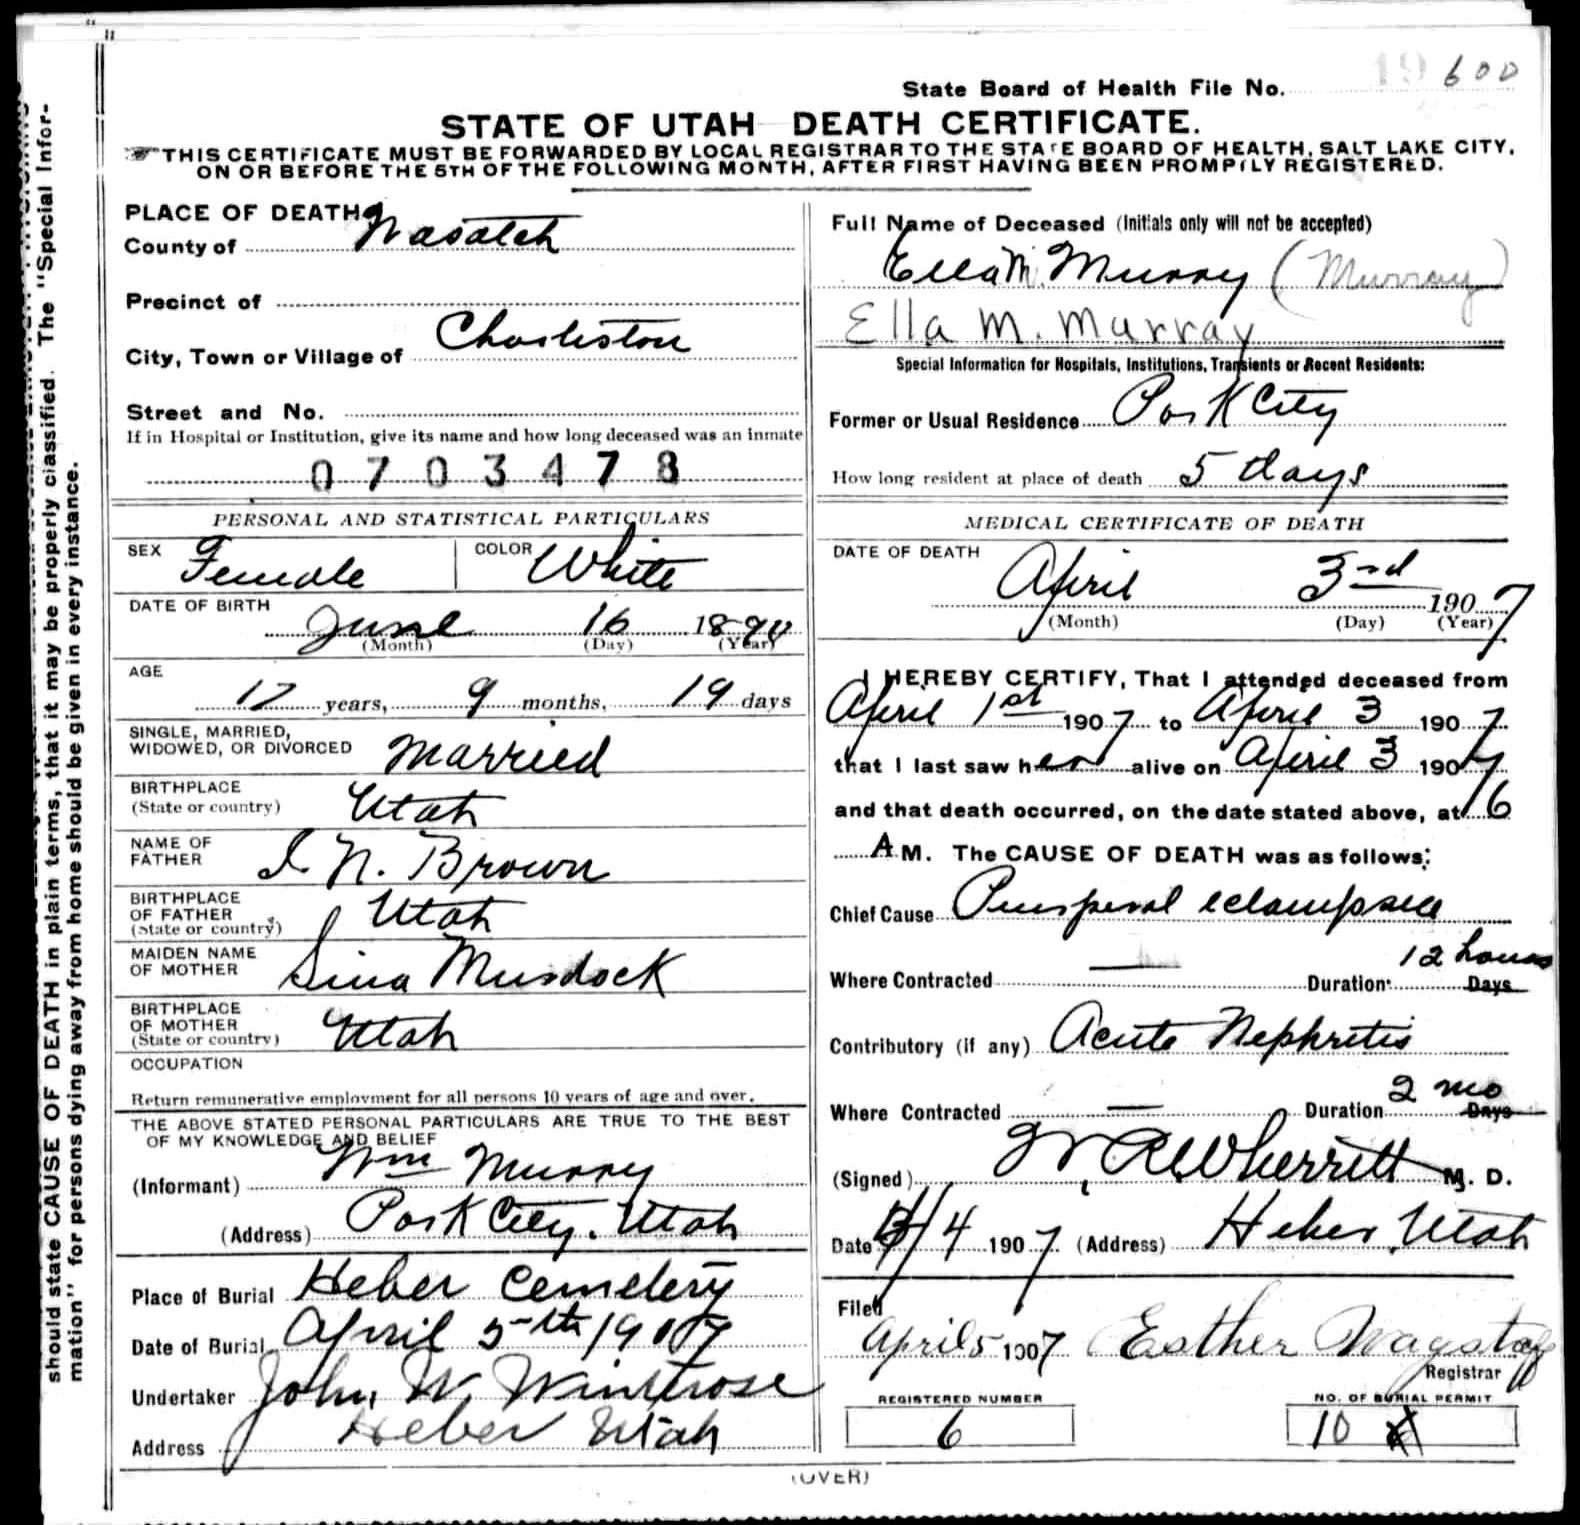 19 600
State Board of Health File No.
STATE OF UTAH DEATH CERTIFICATE.
THIS CERTIFICATE MUST BE FORWARDED BY LOCAL REGISTRAR TO THE STATE BOARD OF HEALTH, SALT LAKE CITY,
ON OR BEFORE THE 5TH OF THE FOLLOWING MONTH, AFTER FIRST HAVING BEEN PROMPTLY REGISTERED.
should state CAUSE OF DEATH in plain terms, that it may be properly classified. The "Special Infor-
mation" for persons dying away from home should be given in every instance.
PLACE OF DEATH
County of Wasatch
Precinct of
City, Town or Village of Charleston
Street and No.
If in Hospital or Institution, give its name and how long deceased was an inmate
0703478
PERSONAL AND STATISTICAL PARTICULARS
SEX Female COLOR White
DATE OF BIRTH
June 16 1890
(Month) (Day) (Year)
AGE
17 years, 9 months, 19 days
SINGLE, MARRIED,
WIDOWED, OR DIVORCED Married
BIRTHPLACE
(State or country) Utah
NAME OF
FATHER I. N. Brown
BIRTHPLACE
OF FATHER
(State or country) Utah
MAIDEN NAME
OF MOTHER Sina Murdock
BIRTHPLACE
OF MOTHER
(State or country) Utah
OCCUPATION
Return remunerative employment for all persons 10 years of age and over.
THE ABOVE STATED PERSONAL PARTICULARS ARE TRUE TO THE BEST
OF MY KNOWLEDGE AND BELIEF
(Informant) Wm Murry
(Address) Park City. Utah
Place of Burial Heber Cemetery
Date of Burial April 5th 1907
Undertaker John W. Wintrose
Address Heber Utah
Full Name of Deceased (Initials only will not be accepted)
Ella M. Murry (Murray)
Ella M. Murray
Special Information for Hospitals, Institutions, Transients or Recent Residents:
Former or Usual Residence Park City
How long resident at place of death 5 days
MEDICAL CERTIFICATE OF DEATH
DATE OF DEATH
April 3rd 1907
(Month) (Day) (Year)
I HEREBY CERTIFY, That I attended deceased from
April 1st 1907 to April 3 1907
that I last saw her alive on April 3 1907
and that death occurred, on the date stated above, at 6
A M. The CAUSE OF DEATH was as follows:
Chief Cause Puerperal eclampsia
Where Contracted — Duration 12 hours Days
Contributory (if any) Acute Nephritis
Where Contracted — Duration 2 mo Days
(Signed) W R Wherritt M. D.
Date 4/4 1907. (Address) Heber Utah
Filed
April 5 1907 Esther Wagstaff
Registrar
REGISTERED NUMBER
6
NO. OF BURIAL PERMIT
10
(OVER)